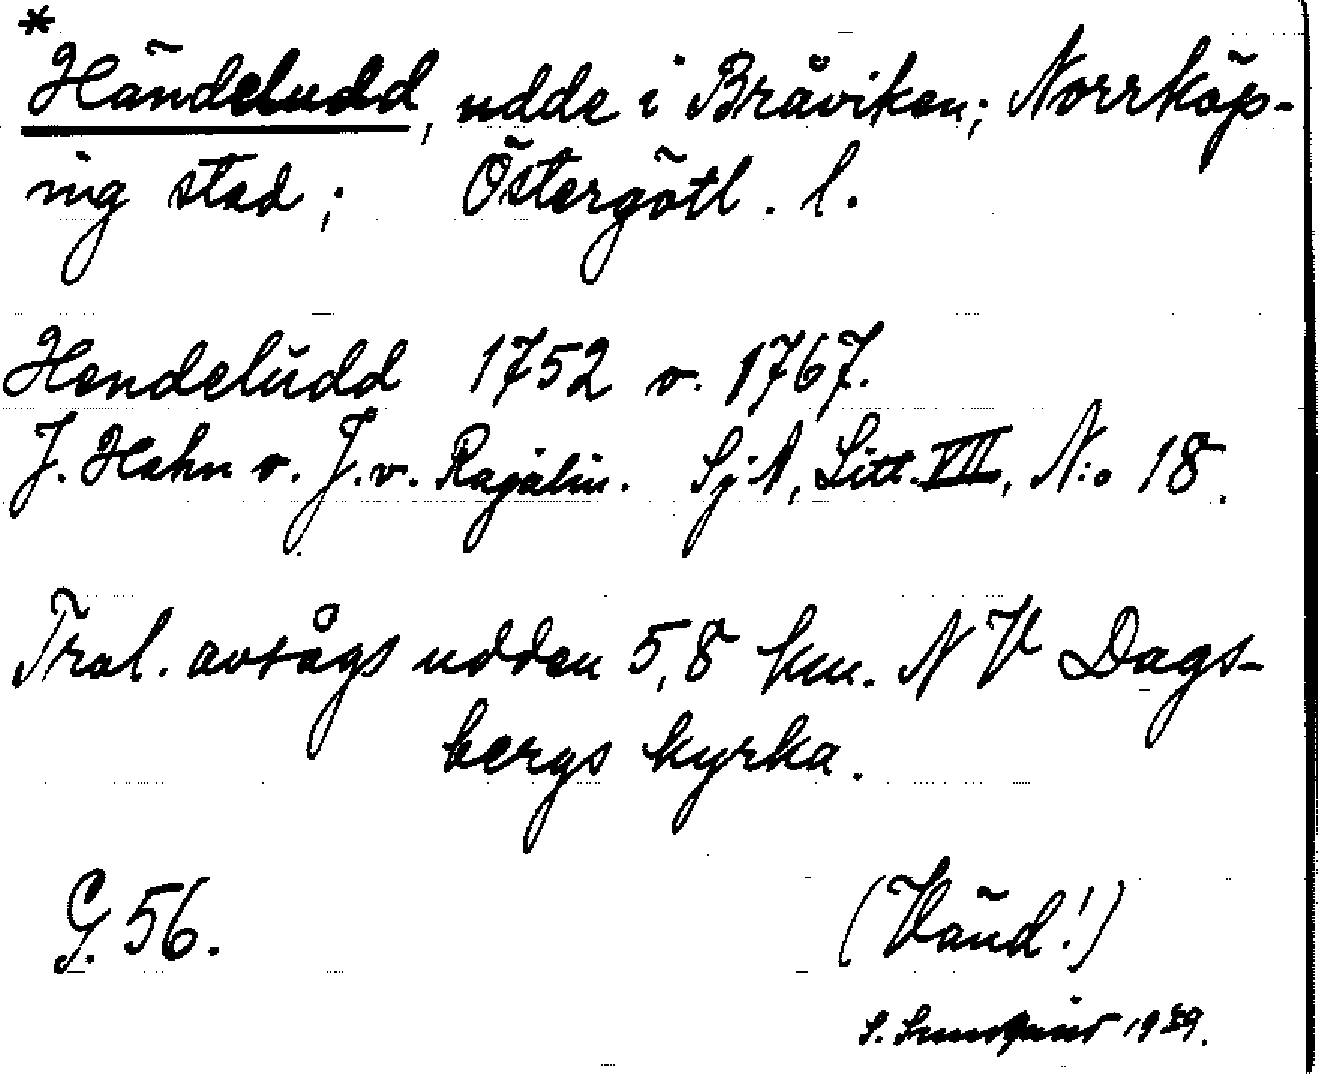 *
Händeludd, udde i Bråviken; Norrköp-
ing stad; Östergötl. l.
Hendelŭdd 1752 o. 1767.
J. Hahn o. J. v. Rajalin. SjA, Litt. VII, N:o 18.
Trol. avsågs udden 5,8 km. NV Dags-
bergs kyrka.
G. 56.
(Vänd!)
S. 1929.